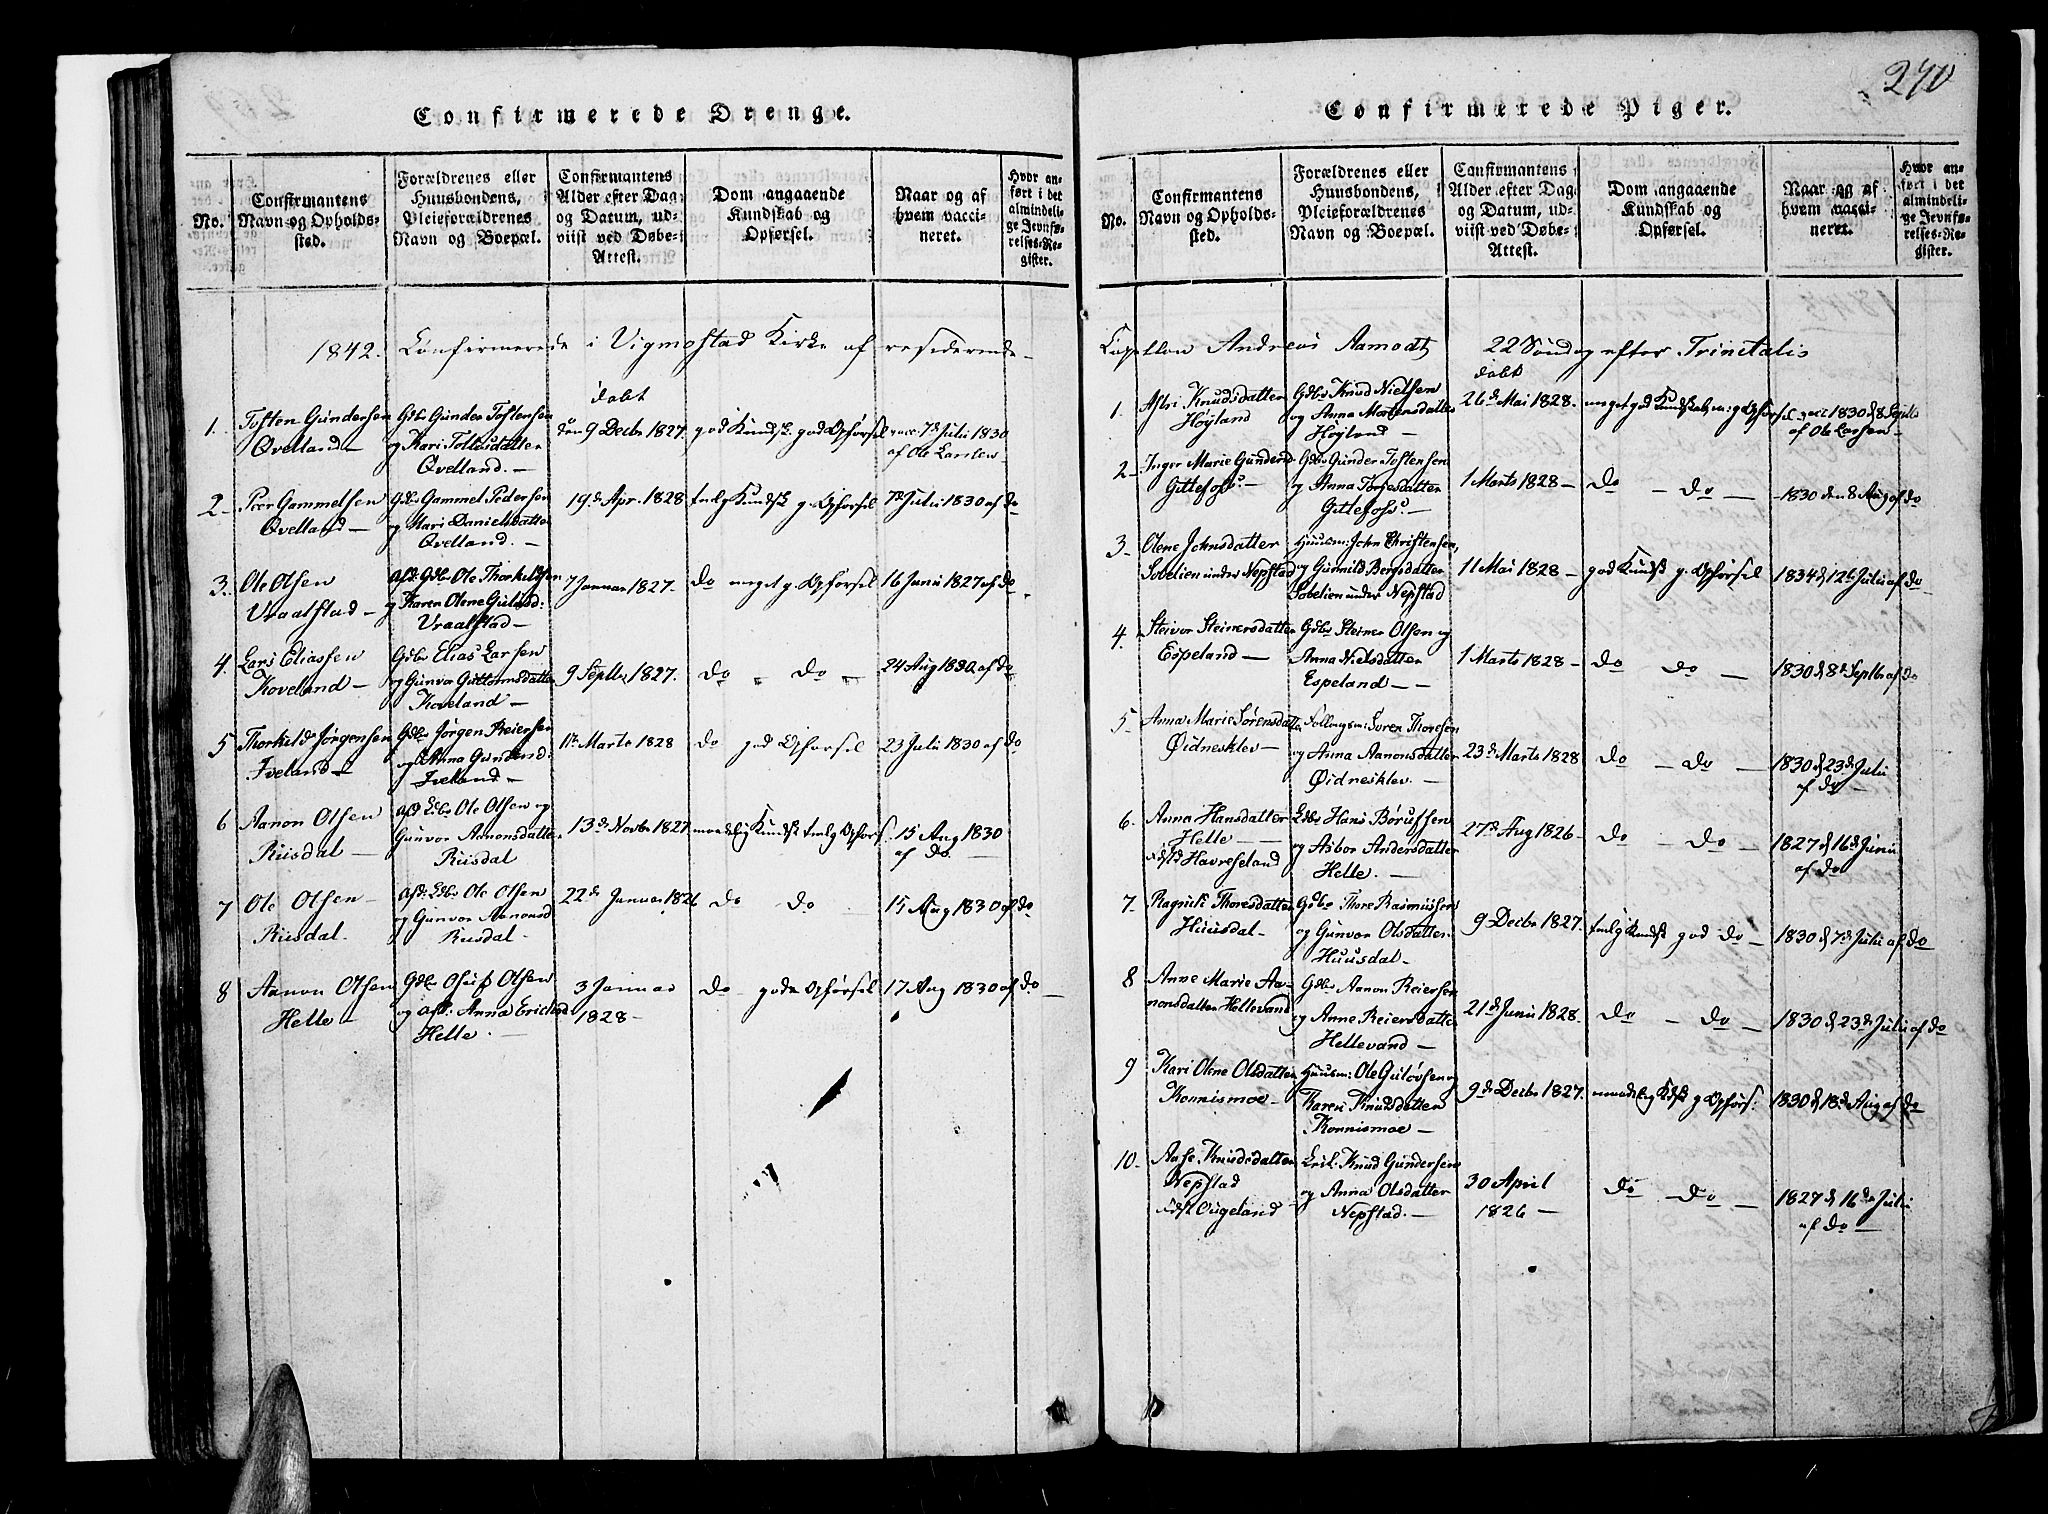 Confirmerede Drenge.
No.
Confirmantens
Navn og Opholds-
sted.
Forældrenes eller
Huusbondens,
Pleieforældrenes
Navn og Boepæl.
Confirmantens
Alder efter Dag
og Datum, ud-
viist ved Døbe-
Attest.
Dom angaaende
Kundskab og
Opførsel.
Naar og af
hvem vacci-
neret.
Hvor an-
ført i det
almindeli-
ge Jevnfø-
relses-Re-
gister.
1842. Confirmerede i Vigmostad Kirke af residerende
døbt
1. Tosten Gundersen
Qvelland
Gdbr Gunder Tostensen
og Kari Tollesdatter
Qvelland.
den 9 Decbr 1827.
god Kundsk. god Opførsel
vacc. 7d Julii 1830
af Ole Larsen
2 Peer Gammelsen
Qvelland
Gdbr Gammel Pedersen
og Mari Danielsdatter
Qvelland.
19de Apr. 1828
temlg Kundsk g. Opførsel
7d Julii 1830 af do
3. Ole Olsen
Vraalstad
afd. Gdbr Ole Thorkildsen
og Karen Olene Gulusd:
Vraalstad
7 Januar 1827.
do meget g. Opførsel
16 Junii 1827 af do
4. Lars Eliassen
Koveland
Gdbr Elias Larsen
og Gunvor Guttormsdatter
Koveland
9 Septbr 1827.
do do
24 Aug 1830 af do
5 Thorkild Jørgensen
Iveland
Gdbr Jørgen Reiersen
og Anna Gundersd.
Iveland
11te Marts 1828
do god Opførsel
23 Julii 1830 af do
6 Aanon Olsen
Riisdal
afd Gdbr Ole Olsen og
Gunvor Aanonsdatter
Riisdal
13de Novbr 1827
maadelig Kundsk temlg Opførs.
15 Aug 1830
af do.
7 Ole Olsen
Riisdal.
afd. Gdbr Ole Olsen
og Gunvor Aanonsd
Riisdal
22de Januar 1826
do do
15 Aug 1830 af do
8 Aanon Olsen
Helle
Gdbr Osuf Olsen
og afd: Anna Ericksd
Helle
3 Januar
1828
do gode Opførsel
17 Aug 1830 af do
270
Confirmerede Piger.
No.
Confirmantens
Navn og Opholds-
sted.
Forældrenes eller
Huusbondens,
Pleieforældrenes
Navn og Boepæl.
Confirmantens
Alder efter Dag
og Datum, ud-
viist ved Døbe-
Attest.
Dom angaaende
Kundskab og
Opførsel.
Naar og af
hvem vacci-
neret.
Hvor an-
ført i det
almindeli-
ge Jevnfø-
relses-Re-
gister.
Capellan Andreas Aamodt 22 Søndag efter Trinitatis
døbt
1. Asbri Knudsdatter
Høyland
Gdbr Knud Nielsen
og Anna Mortensdatter
Høyland
26de Mai 1828.
meget god Kundskab, m: g Opførsel
vacc 1830 d 8 Septbr
af Ole Larsen
2 Inger Marie Gundersd
Gittefoss
Gdbr Gunder Tostensen
og Anna Torjesdatter
Gittefoss
1 Marts 1828
do do
1830 den 8 Aug af do
3 Olene Johnsdatter
Sobelien under Nepstad
Huusm: John Christensen,
og Gunnild Bergsdatter
Sobelien under Nepstad
11 Mai 1828
god Kundsk g. Opførsel
1834 d 12te Julii af do
4. Steivor Steinersdatter
Espeland
Gdbr Steiner Olsen og
Anna Nielsdatter
Espeland
1 Marts 1828
do do
1830 d 8de Septbr af do
5. Anna Marie Sørensdatter
Øidnesklev
Soren Thoresen
og Anna Aanonsdatter
Øidnesklev.
23de Marts 1828
do do
1830 d 23de Julii
af do
6. Anna Hansdatter
Helle
Fdst Havreseland
Gdbr Hans Børufsen
og Asbor Andersdatter
Helle.
27de Aug 1826
do do
1827 d 16de Junii
af do
7. Ragnild Thoresdatter
Huusdal
Gdbr Thore Rasmussen
og Gunvor Olsdatter
Huusdal
9 Decbr 1827.
temlg Kundsk god do
1830 d 7de Julii af do
8 Anne Marie Aa-
nonsdatter Hellevand
Gdbr Aanon Reiersen
og Anne Reiersdatter
Hellevand
21de Junii 1828.
do do
1830 d 23de Julii af do
9 Kari Oline Olsdatter
Konnismoe
Huusm: Ole Guløvsen og
Karen Knudsdatter
Konnismoe
9de Decbr 1827.
maadelig Kdsk g Opførs:
1830 d 18de Aug af do
10. Aase Knudsdatter
Nepstad
Fdst Ougeland
Knud Gundersen
og Anna Olsdatter
Nepstad.
30 April
1826
do do
1827 d 16de Julii
af do